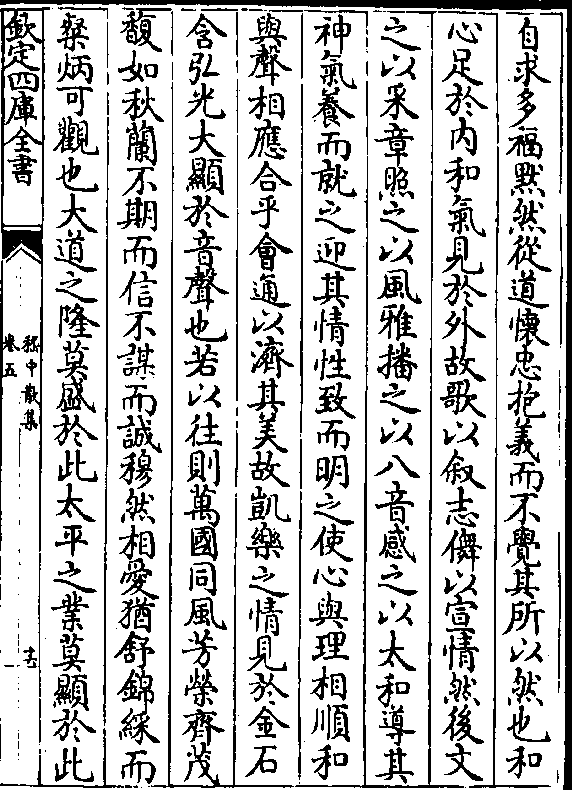 自求多福黙然從道懐忠抱義而不覺其所以然也和
心足於内和氣見於外故歌以叙志儛以宣情然後文
之以采章照之以風雅播之以八音感之以太和導其
神氣養而就之迎其情性致而明之使心與理相順和
與聲相應合乎會通以濟其美故凱樂之情見於金石
含弘光大顯於音聲也若以往則萬國同風芳榮齊茂
馥如秋蘭不期而信不謀而誠穆然相愛猶舒錦綵而
粲炳可觀也大道之隆莫盛於此太平之業莫顯於此
欽定四庫全書
嵇中散集
卷五